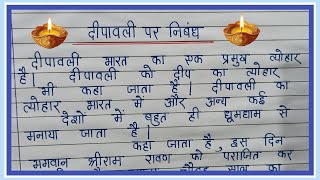 दीपावली पर निबंध
दीपावली भारत का एक प्रमुख त्योहार
है। दीपावली को दीप का त्योहार
भी कहा जाता है। दीपावली का
त्योहार भारत में और अन्य कई
देशों में बहुत ही धूमधाम से
मनाया जाता है।
कहा जाता है, इस दिन
भगवान श्रीराम रावण को पराजित कर